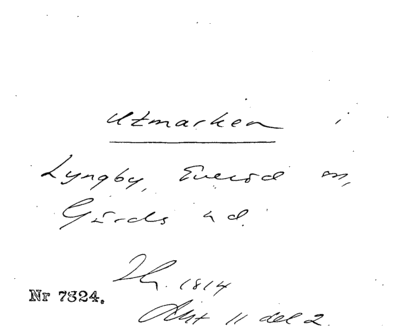 Utmarken i
Lyngby, Everöd m,
Gärds hd.
1814
Nr 7324.
Akt 11 del 2.